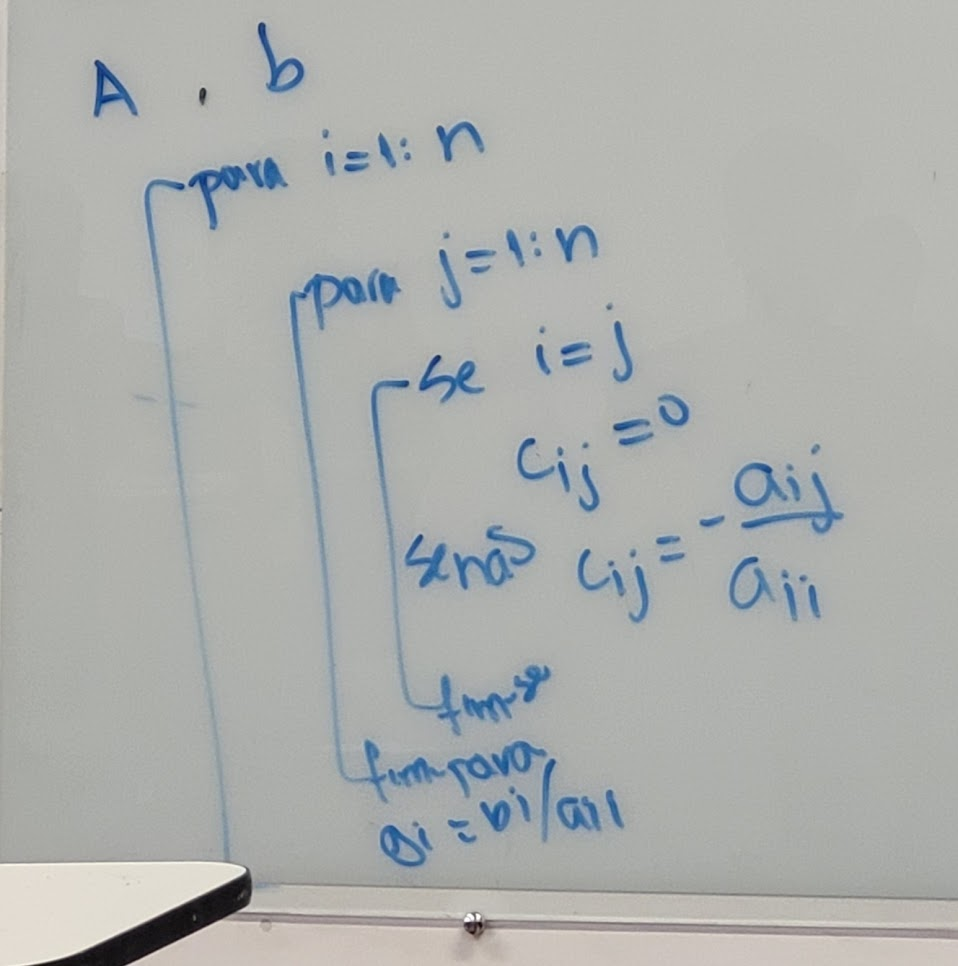 A . b
para i=1:n
para j=1:n
se i=j
cij=0
senão cij=-aij/aii
fim-se
fim-para
gi=bi/aii